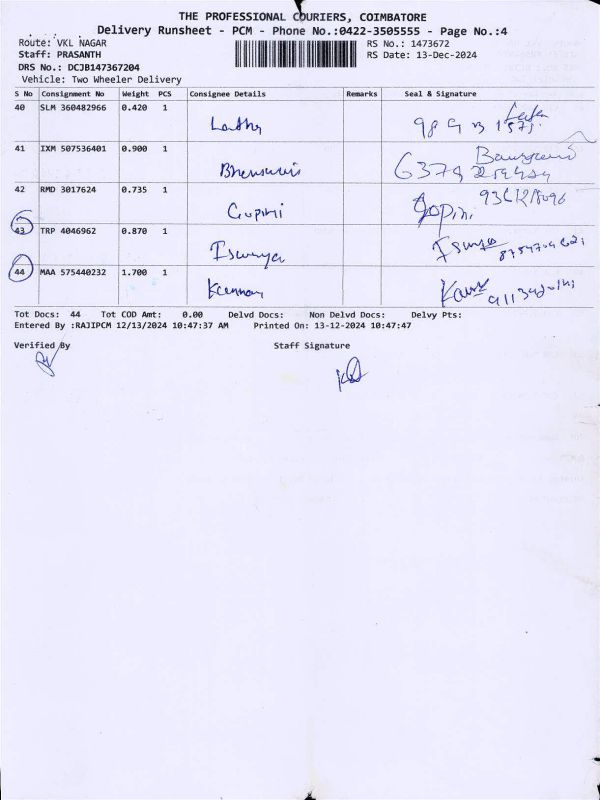 THE PROFESSIONAL COURIERS, COIMBATORE
Delivery Runsheet - PCM - Phone No.:0422-3505555 - Page No.:4
Route: VKL NAGAR
RS No.: 1473672
Staff: PRASANTH
RS Date: 13-Dec-2024
DRS No.: DCJB147367204
Vehicle: Two Wheeler Delivery
S No Consignment No Weight PCS Consignee Details Remarks Seal & Signature
40 SLM 360482966 0.420 1
41 IXM 507536401 0.900 1
42 RMD 3017624 0.735 1 Gopini Gopini
43 TRP 4046962 0.870 1 Iswarya Iswarya
44 MAA 575440232 1.700 1 Kannan
Tot Docs: 44 Tot COD Amt: 0.00 Delvd Docs: Non Delvd Docs: Delvy Pts:
Entered By :RAJIPCM 12/13/2024 10:47:37 AM Printed On: 13-12-2024 10:47:47
Verified By Staff Signature